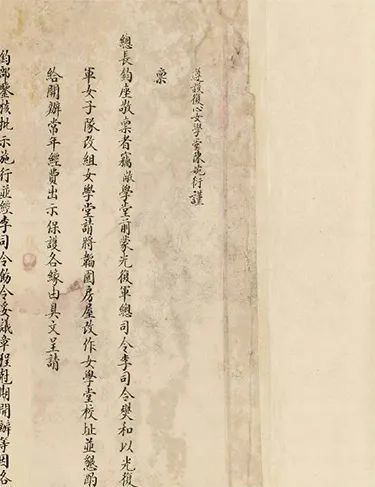 遵設復心女學堂陳婉衍謹
稟
總長鈞座敬稟者竊敝學堂前蒙光復軍總司令李司令燮和以光復
軍女子隊改組女學堂請將韜園房屋改作女學堂校址並懇酌
給開辦常年經費出示保護各緣由具文呈請
鈞部鑒核批示施行並經李司令飭令妥議章程尅期開辦等因各